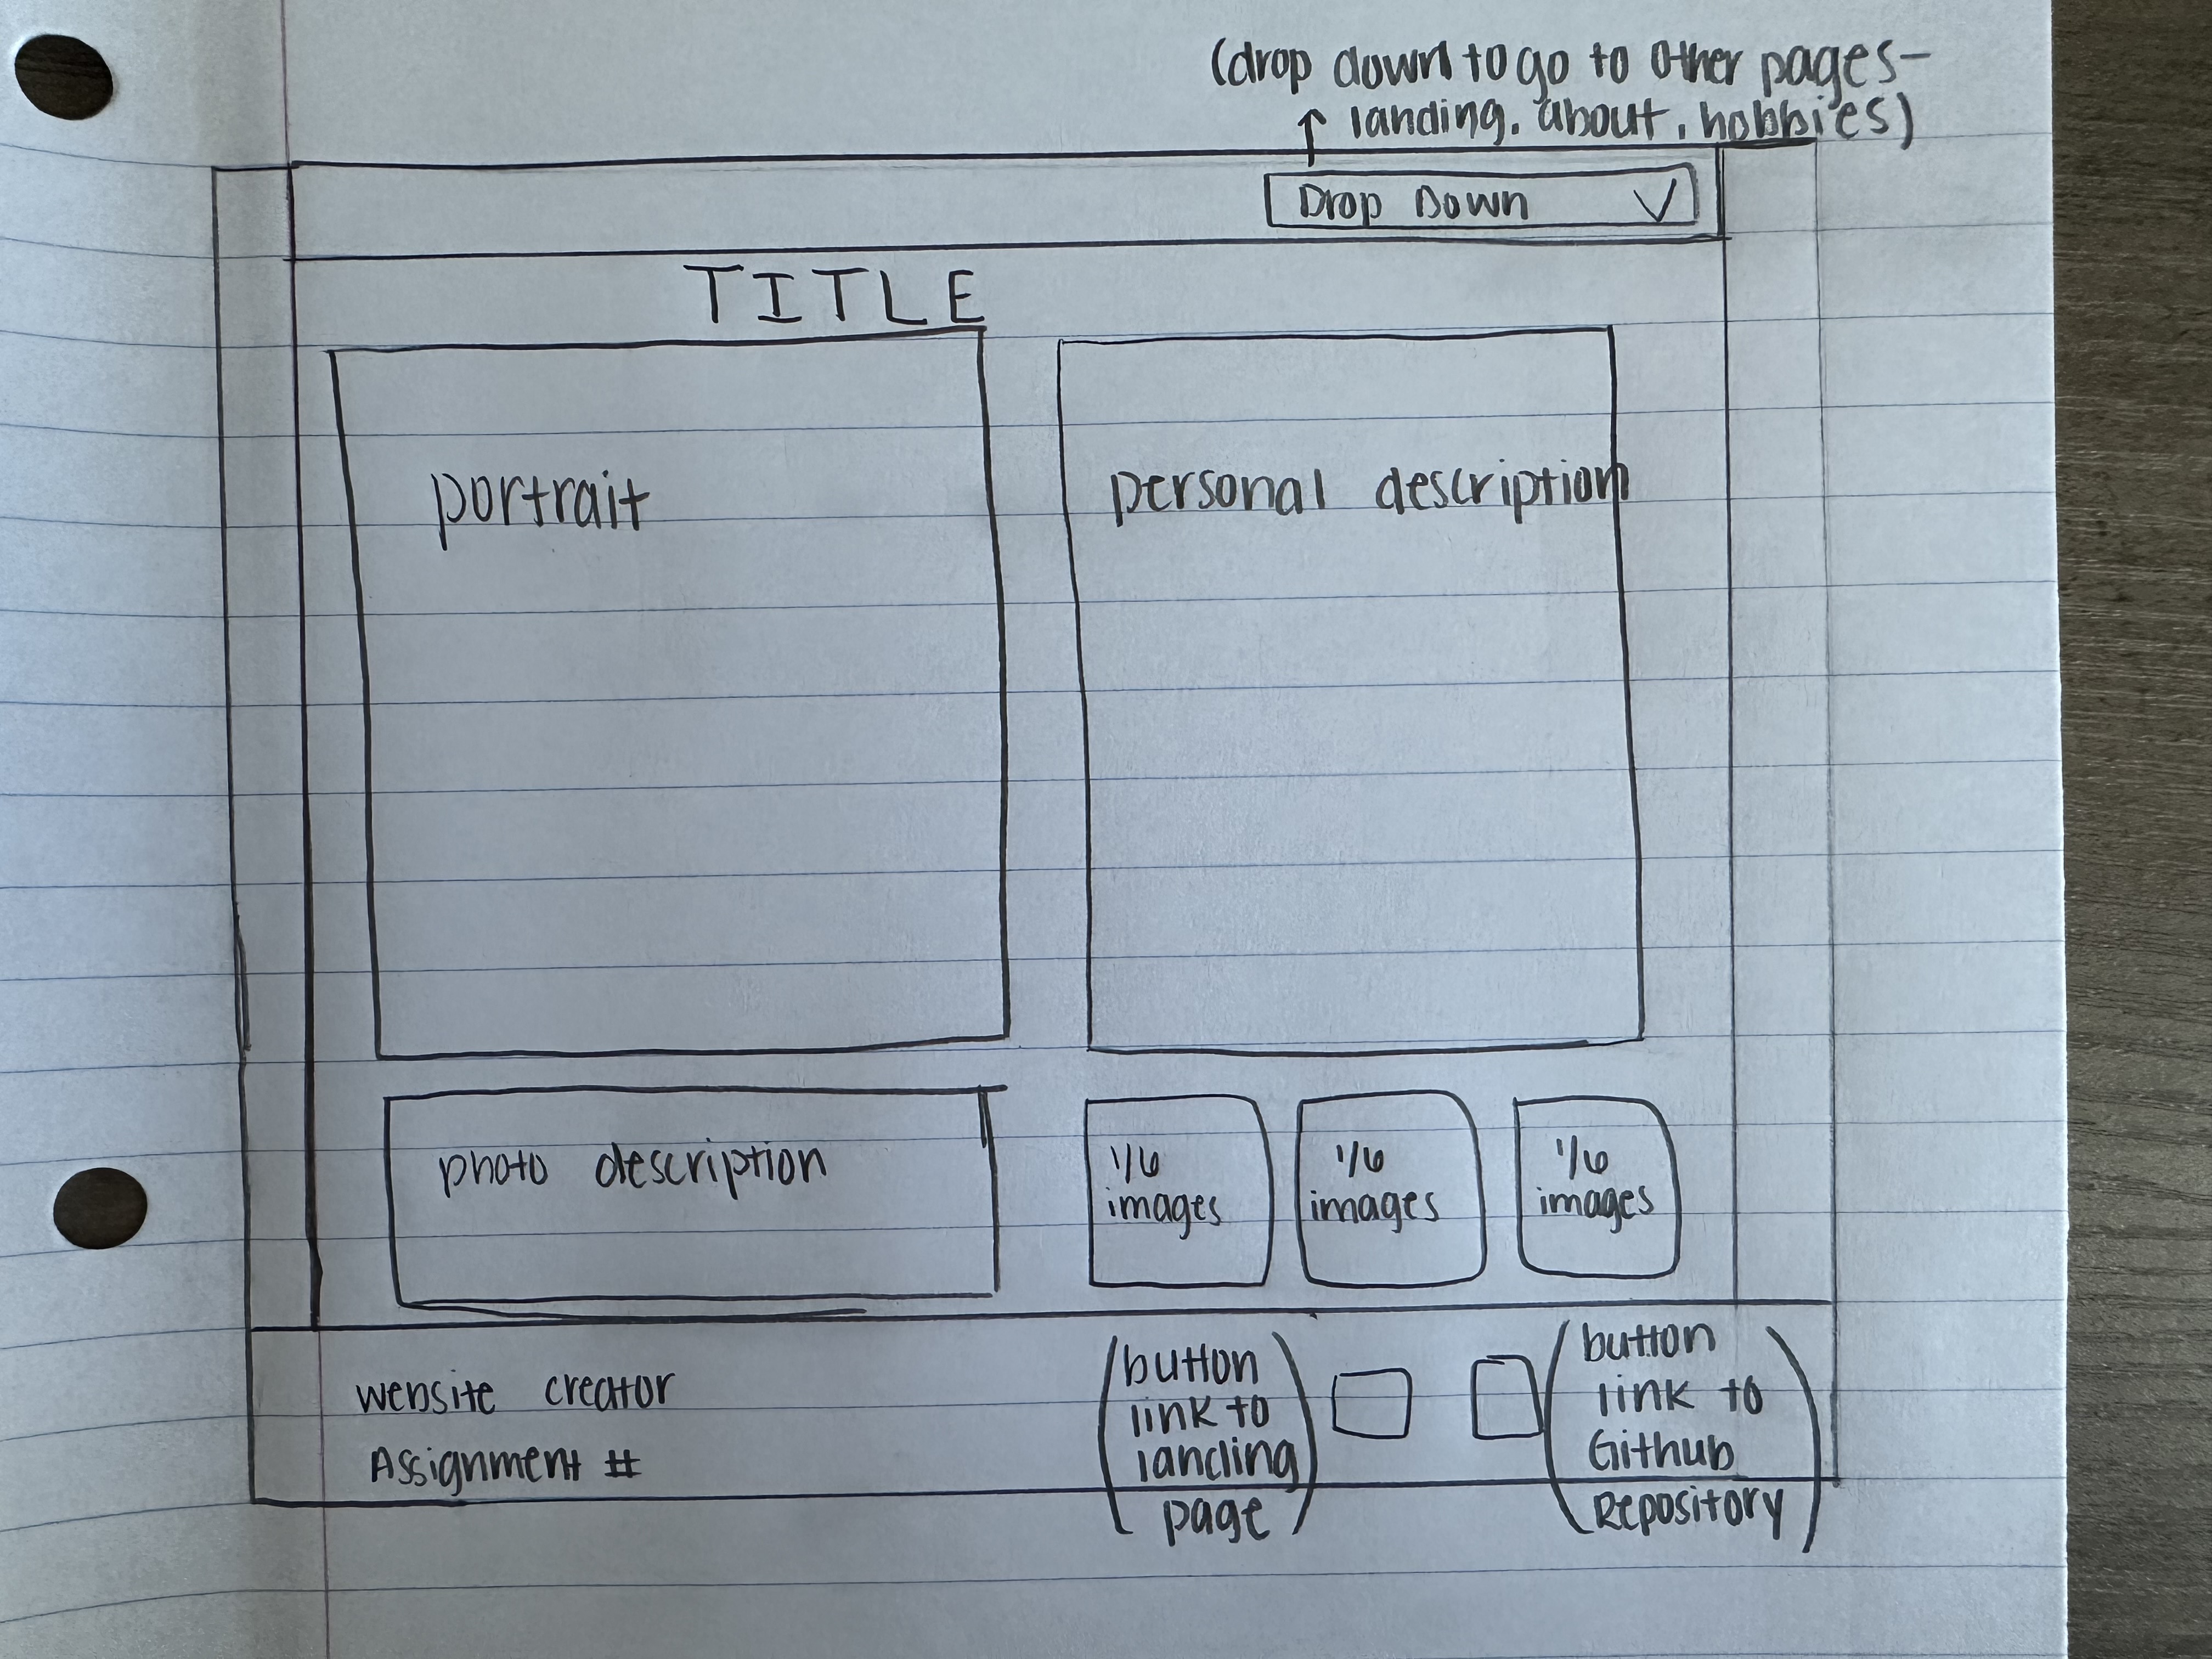 (drop down to go to other pages-
↑ landing, about, hobbies)
Drop Down V
TITLE
portrait
personal description
photo description
1/6
images
1/6
images
1/6
images
website creator
Assignment #
(button
link to
landing
page)
(button
link to
Github
Repository)